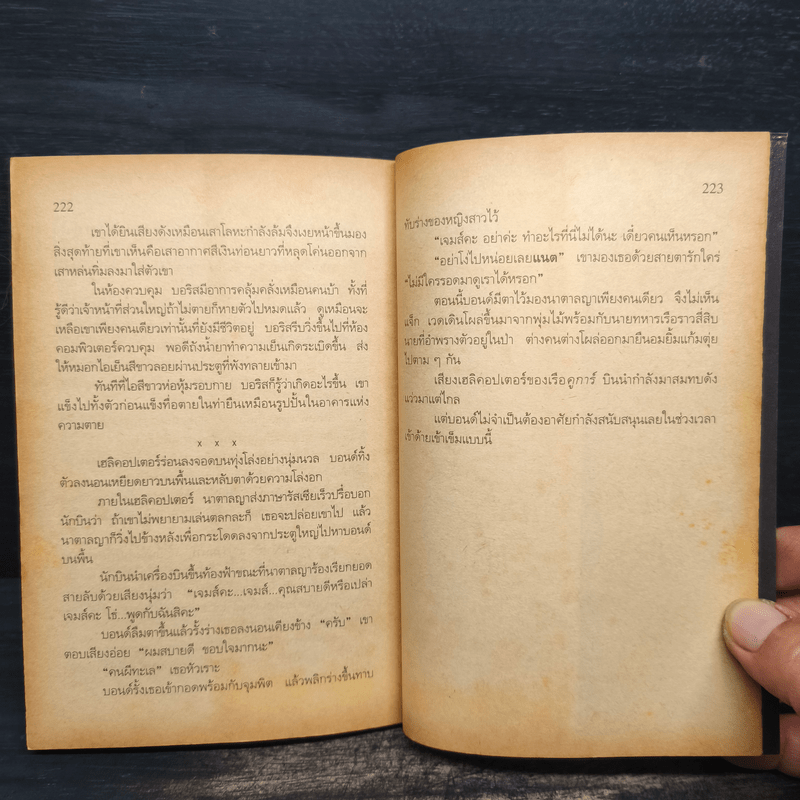 222
เขาได้ยินเสียงดังเหมือนเสาโลหะกำลังล้มจึงเงยหน้าขึ้นมอง
สิ่งสุดท้ายที่เขาเห็นคือเสาอากาศสีเงินท่อนยาวที่หลุดโค่นออกจาก
เสาหล่นทิ่มลงมาใส่ตัวเขา
ในห้องควบคุม บอริสมีอาการคลุ้มคลั่งเหมือนคนบ้า ทั้งที่
รู้ดีว่าเจ้าหน้าที่ส่วนใหญ่ถ้าไม่ตายก็หายตัวไปหมดแล้ว ดูเหมือนจะ
เหลือเขาเพียงคนเดียวเท่านั้นที่ยังมีชีวิตอยู่ บอริสรีบวิ่งขึ้นไปที่ห้อง
คอมพิวเตอร์ควบคุม พอดีถังน้ำยาทำความเย็นเกิดระเบิดขึ้น ส่ง
ให้หมอกไอเย็นสีขาวลอยผ่านประตูที่พังทลายเข้ามา
ทันทีที่ไอสีขาวห่อหุ้มรอบกาย บอริสก็รู้ว่าเกิดอะไรขึ้น เขา
แข็งไปทั้งตัวก่อนแข็งทื่อตายในท่ายืนเหมือนรูปปั้นในอาคารแห่ง
ความตาย
x x x
เฮลิคอปเตอร์ร่อนลงจอดบนทุ่งโล่งอย่างนุ่มนวล บอนด์ทิ้ง
ตัวลงนอนเหยียดยาวบนพื้นและหลับตาด้วยความโล่งอก
ภายในเฮลิคอปเตอร์ นาตาลญาส่งภาษารัสเซียเร็วปรื๋อบอก
นักบินว่า ถ้าเขาไม่พยายามเล่นตลกละก็ เธอจะปล่อยเขาไป แล้ว
นาตาลญาก็วิ่งไปข้างหลังเพื่อกระโดดลงจากประตูใหญ่ไปหาบอนด์
บนพื้น
นักบินนำเครื่องบินขึ้นท้องฟ้าขณะที่นาตาลญาร้องเรียกยอด
สายลับด้วยเสียงนุ่มว่า “เจมส์คะ...เจมส์...คุณสบายดีหรือเปล่า
เจมส์คะ โธ่...พูดกับฉันสิคะ”
บอนด์ลืมตาขึ้นแล้วรั้งร่างเธอลงนอนเคียงข้าง “ครับ” เขา
ตอบเสียงอ่อย “ผมสบายดี ขอบใจมากนะ”
“คนผีทะเล” เธอหัวเราะ
บอนด์รั้งเธอเข้ากอดพร้อมกับจุมพิต แล้วพลิกร่างขึ้นทาบ
223
ทับร่างของหญิงสาวไว้
“เจมส์คะ อย่าค่ะ ทำอะไรที่นี่ไม่ได้นะ เดี๋ยวคนเห็นหรอก”
“อย่าโง่ไปหน่อยเลยแนต” เขามองเธอด้วยสายตารักใคร่
“ไม่มีใครรอดมาดูเราได้หรอก”
ตอนนี้บอนด์มีตาไว้มองนาตาลญาเพียงคนเดียว จึงไม่เห็น
แจ็ก เวดเดินโผล่ขึ้นมาจากพุ่มไม้พร้อมกับนายทหารเรือราวสี่สิบ
นายที่อำพรางตัวอยู่ในป่า ต่างคนต่างโผล่ออกมายืนอมยิ้มแก้มตุ่ย
ไปตาม ๆ กัน
เสียงเฮลิคอปเตอร์ของเรือคูการ์ บินนำกำลังมาสมทบดัง
แว่วมาแต่ไกล
แต่บอนด์ไม่จำเป็นต้องอาศัยกำลังสนับสนุนเลยในช่วงเวลา
เข้าด้ายเข้าเข็มแบบนี้